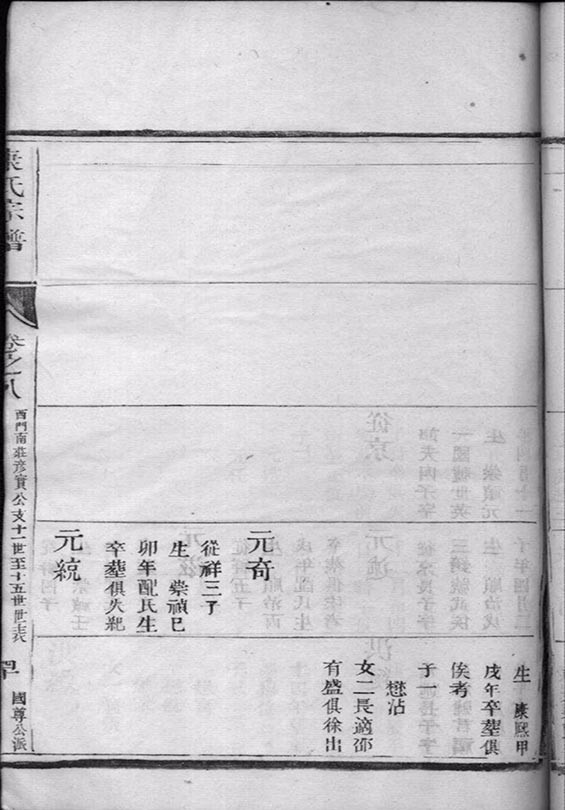 生 康熙甲
戌年卒塟俱
俟考
子一
懋沾
女二長適邵
有盛俱徐出
元奇
從祥三子
生 崇禎己
卯年配氏生
卒塟俱失紀
元統
康氏宗譜
卷之八
西門南莊彦賓公支十一世至十五世世表
國尊公派